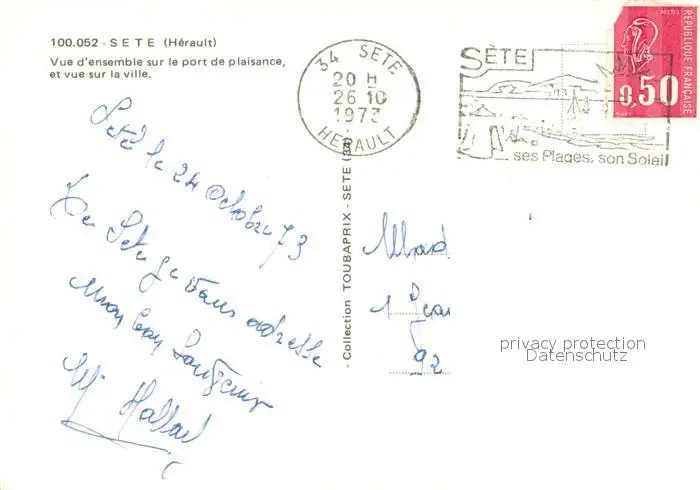 100.052 - SETE (Hérault)
Vue d'ensemble sur le port de plaisance,
et vue sur la ville.
34 SETE
20 H
26 10
1973
HERAULT
SÈTE
ses Plages, son Soleil
POSTES
0,50
REPUBLIQUE FRANÇAISE
- Collection TOUBAPRIX - SETE (34) -
Sète le 24 Octobre 73
De Sète je vous adresse
mon bon Souvenir
Mad
1
92
privacy protection
Datenschutz